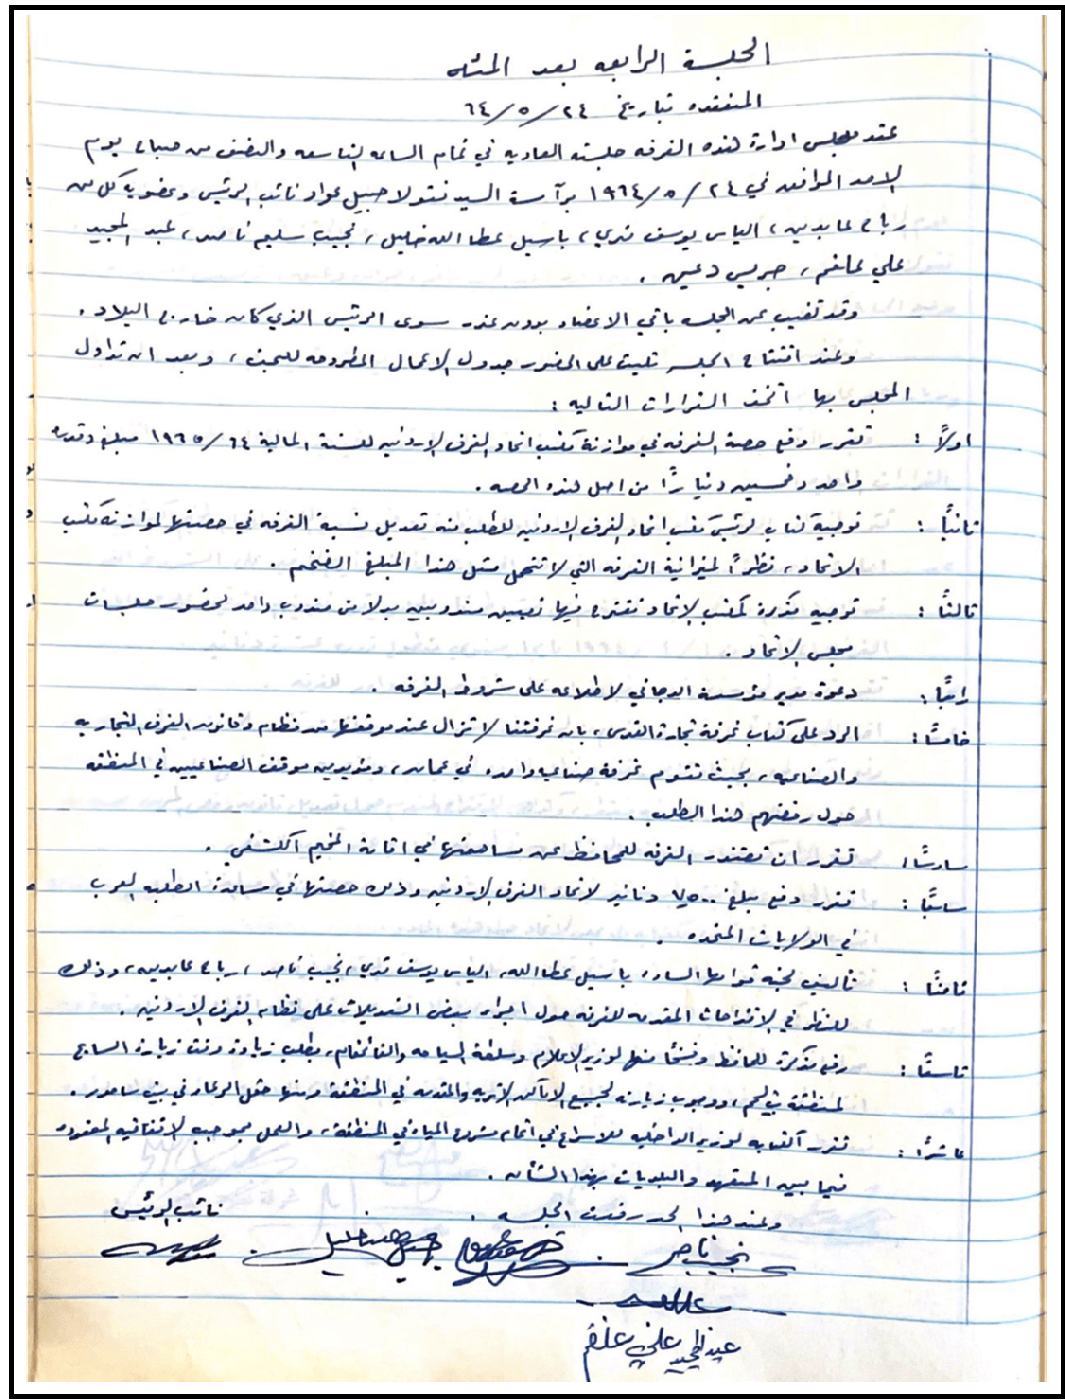 الجلسة الرابعه بعد المئه
المنعقده بتاريخ ٢٤/٥/٦٤
عقد مجلس ادارة هذه الغرفه جلسته العاديه في تمام الساعه التاسعه والنصف من صباح يوم
الاحد الموافق في ٢٤/٥/١٩٦٤ برآسة السيد نقولا جميل عواد نائب الرئيس وعضوية كل من
رباح عابدين، الياس يوسف قدي، باسيل عطا الله خليل، نجيب سليم ناصر، عبد المجيد
علي علقم، جريس دعيس.
وقد تغيب عن الجلسه باقي الاعضاء بدون عذر سوى الرئيس الذي كان خارج البلاد.
وعند افتتاح الجلسه تليت على الحضور جدول الاعمال المطروحه للبحث، وبعد ان تداول
المجلس بها اتخذ القرارات التاليه:
اولاً: تقرر دفع حصة الغرفه في موازنة مكتب اتحاد الغرف الاردنيه للسنة المالية ٦٤/١٩٦٥ مبلغ وقدره
واحد وخمسين ديناراً من اصل هذه الحصه.
ثانياً: توجيه كتاب لرئيس مكتب اتحاد الغرف الاردنيه للطلب منه تعديل نسبة الغرفه في حصتها لموازنة مكتب
الاتحاد، نظراً لميزانية الغرفه التي لا تتحمل مثل هذا المبلغ الضخم.
ثالثاً: توجيه مذكرة لمكتب الاتحاد تقترح فيها تعيين مندوبين بدلا من مندوب واحد لحضور جلسات
مجلس الاتحاد.
رابعاً: دعوة مدير مؤسسة الدجاني لاطلاعه على شروط الغرفه.
خامساً: الرد على كتاب غرفة تجارة القدس، بان غرفتنا لا تزال عند موقفها من نظام وقانون الغرف التجاريه
والصناعيه، بحيث تقوم غرفة صناعيه واحده في عمان، ومؤيدين موقف الصناعيين في المنطقه
حول رفضهم هذا الطلب.
سادساً: تقرر ان تعتذر الغرفه للمحافظ عن مساهمتها في اقامة المخيم الكشفي.
سابعاً: تقرر دفع مبلغ ٧٫٥٠٠ دنانير لاتحاد الغرف الاردنيه وذلك حصتها في مساعدة الطلبه العرب
في الولايات المتحده.
ثامناً: تاليف لجنه قوامها الساده باسيل عطا الله، الياس يوسف قدي، نجيب ناصر، رباح عابدين، وذلك
للنظر في الاقتراحات المقدمه للغرفه حول اجراء بعض التعديلات على نظام الغرف الاردنيه.
تاسعاً: رفع مذكرة للمحافظ ونسخاً منها لوزير الاعلام وسلطة السياحه والقائمقام، بطلب زيادة وقت زيارة السايح
لمنطقة بيت لحم، ووجوب زيارته لجميع الاماكن الاثريه والمقدسه في المنطقة ومنها حقل الرعاه في بيت ساحور.
عاشراً: تقرر الكتابه لوزير الداخليه للاسراع في اتمام مشروع المياه في المنطقه، والعمل بموجب الاتفاقيه المعقوده
فيما بين المتعهد والبلديات بهذا الشأن.
وعند هذا الحد رفعت الجلسه.
نائب الرئيس
نجيب ناصر
عبد المجيد علي علقم